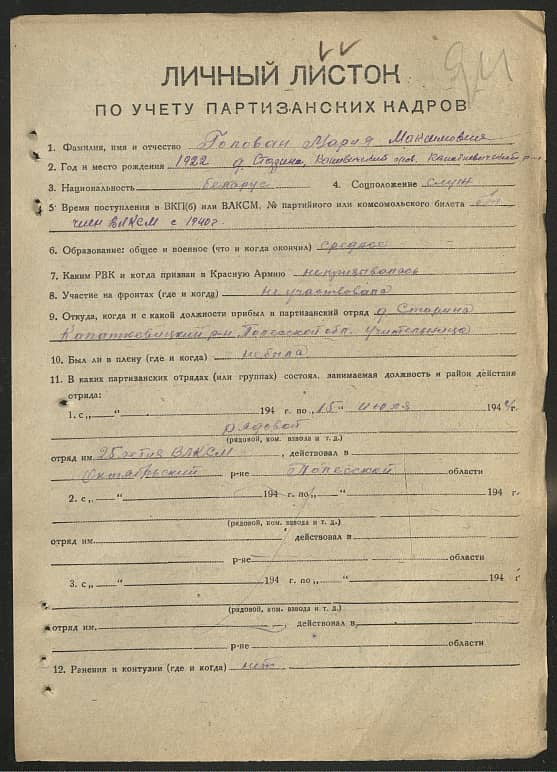 ЛИЧНЫЙ ЛИСТОК
ПО УЧЕТУ ПАРТИЗАНСКИХ КАДРОВ
1. Фамилия, имя и отчество Мария Максимовна
2. Год и место рождения 1922 д.
3. Национальность беларус 4. Соцположение служ
5. Время поступления в ВКП(б) или ВЛКСМ, № партийного или комсомольского билета б/п
член ВЛКСМ с 1940 г.
6. Образование: общее и военное (что и когда окончил) среднее
7. Каким РВК и когда призван в Красную Армию непризывалась
8. Участие на фронтах (где и когда) не участвовала
9. Откуда, когда и с какой должности прибыл в партизанский отряд д. Старина
Копаткевицкий р-н, Полесской обл. учительница
10. Был ли в плену (где и когда) небыла
11. В каких партизанских отрядах (или группах) состоял, занимаемая должность и район действия
отряда:
1. с „ “ 194 г. по „15“ июля 1944 г.
рядовой
(рядовой, ком. взвода и т. д.)
отряд им. 25 летия ВЛКСМ, действовал в
Октябрьский р-не Полесской области
2. с „ “ 194 г. по „ “ 194 г.
(рядовой, ком. взвода и т. д.)
отряд им. действовал в
р-не области
3. с „ “ 194 г. по „ “ 194 г.
(рядовой, ком. взвода и т. д.)
отряд им. , действовал в
р-не области
12. Ранения и контузии (где и когда) нет